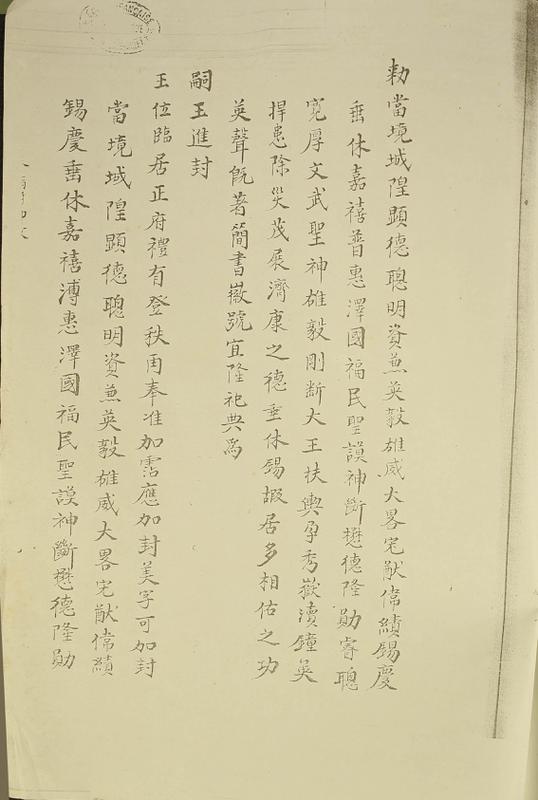 敕當境城隍顕德聰明資兼英毅雄威大畧宏猷偉績錫慶
垂休嘉禧普惠澤國福民聖謨神斷懋德隆勛睿聰
寬厚文武聖神雄毅剛断大王扶輿孕秀嶽瀆鐘英
捍患除災茂展濟康之德垂休錫嘏居多相佑之功
英聲旣著簡書徽號宜隆祀典爲
嗣王進封
王位臨居正府禮有登秩甬奉准加霑應加封美字可加封
當境城隍顕德聰明資兼英毅雄威大畧宏猷偉績
錫慶垂休嘉禧溥惠澤國福民聖謨神斷懋德隆勛